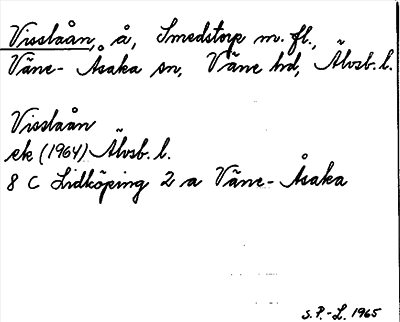 Visslaån, å, Smedstorp m. fl.,
Väne-Åsaka sn, Väne hd, Älvsb. l.
Visslaån
ek (1964) Älvsb. l.
8 C Lidköping 2 a Väne-Åsaka
S. P.-L. 1965